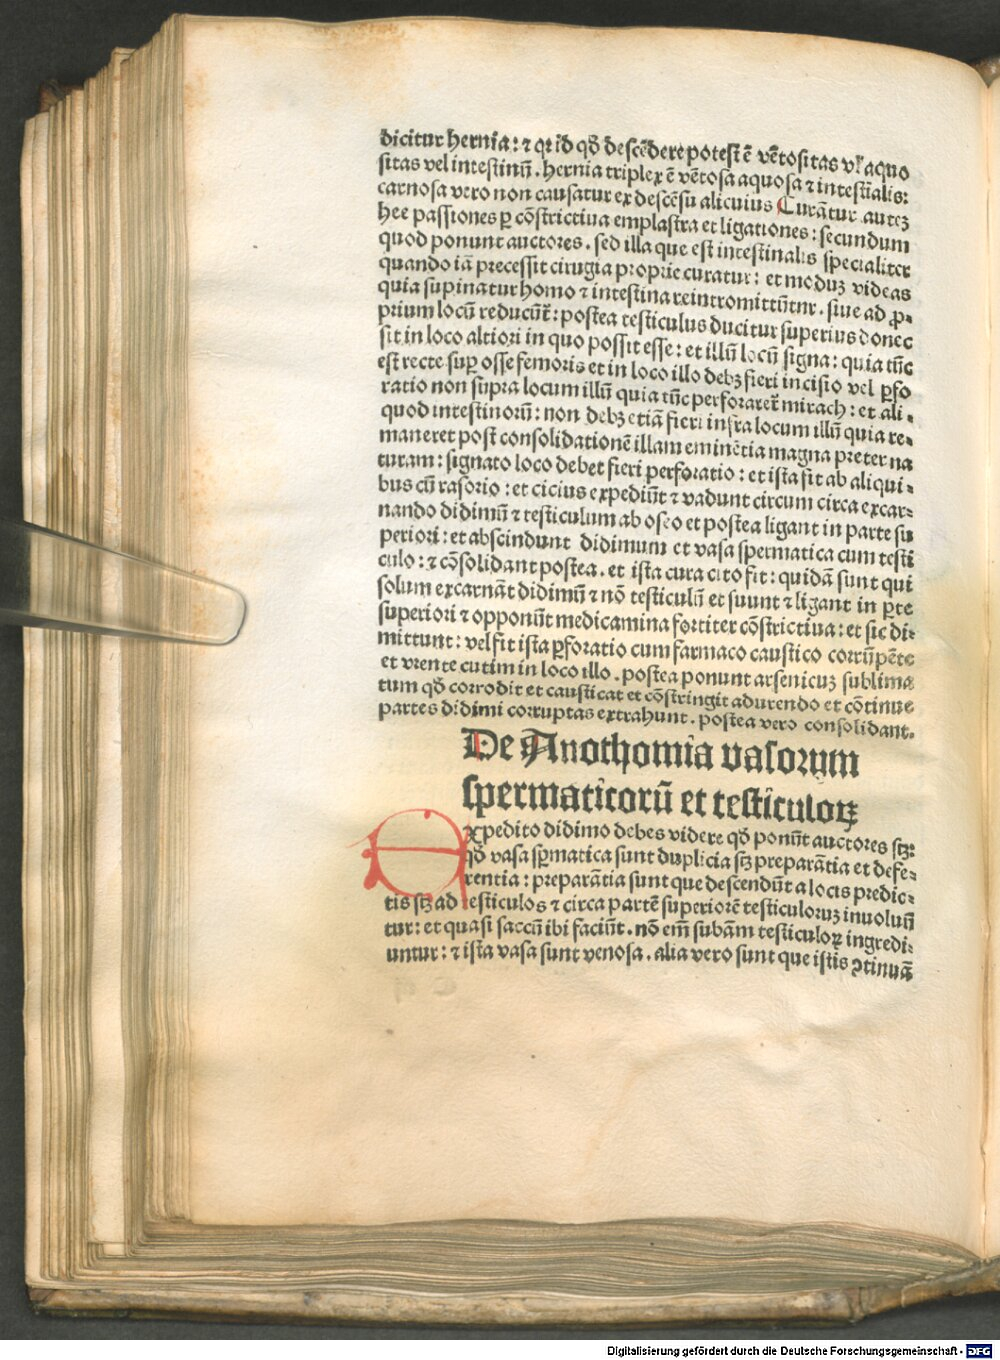 dicitur hernia: ⁊ qꝛ id qð descēdere potest ē vētositas vl' aquo
sitas vel intestinū. hernia triplex ē vētosa aquosa ⁊ intestīalis:
carnosa vero non causatur ex descēsu alicuius Curātur auteꝫ
hee passiones ꝑ cōstrictiua emplastra et ligationes: secundum
quod ponunt auctores. sed illa que est intestinalis specialiter
quando iā precessit cirugia proprie curatur: et moduꝫ videas
quia supinatur homo ⁊ intestina reintromittūtur. siue ad ꝓ-
prium locū reducūt̄: postea testiculus ducitur superius donec
sit in loco altiori in quo possit esse: et illū locū signa: quia tūc
est recte suꝑ osse femoris et in loco illo debꝫ fieri incisio vel ꝑfo
ratio non supra locum illū quia tūc perforaret̄ mirach: et ali-
quod intestinorū: non debꝫ etiā fieri infra locum illū quia re-
maneret post consolidationē illam eminētia magna preter na
turam: signato loco debet fieri perforatio: et ista fit ab aliqui-
bus cū rasorio: et cicius expediūt ⁊ vadunt circum circa excar-
nando didimū ⁊ testiculum ab oseo et postea ligant in parte su
periori: et abscindunt didimum et vasa spermatica cum testi
culo: ⁊ cōsolidant postea. et ista cura cito fit: quidā sunt qui
solum excarnāt didimū ⁊ nō testiculū et suunt ⁊ ligant in ꝑte
superiori ⁊ opponūt medicamina fortiter cōstrictiua: et sic di-
mittunt: vel fit ista ꝑforatio cum farmaco caustico corrūpēte
et vrente cutim in loco illo. postea ponunt arsenicuꝫ sublima
tum qð corrodit et causticat et cōstringit adurendo et cōtinue
partes didimi corruptas extrahunt. postea vero consolidant.
De Anothomia vasorum
spermaticorū et testiculoꝝ
Expedito didimo debes videre qð ponūt auctores scꝫ:
qð vasa sꝑmatica sunt duplicia scꝫ preparātia et defe-
rentia: preparātia sunt que descendūt a locis predic-
tis scꝫ ad testiculos ⁊ circa partē superiorē testiculoruꝫ inuoluū
tur: et quasi saccū ibi faciūt. nō em̄ subām testiculoꝝ ingredi-
untur: ⁊ ista vasa sunt venosa. alia vero sunt que istis ꝯtinuā
Digitalisierung gefördert durch die Deutsche Forschungsgemeinschaft - DFG